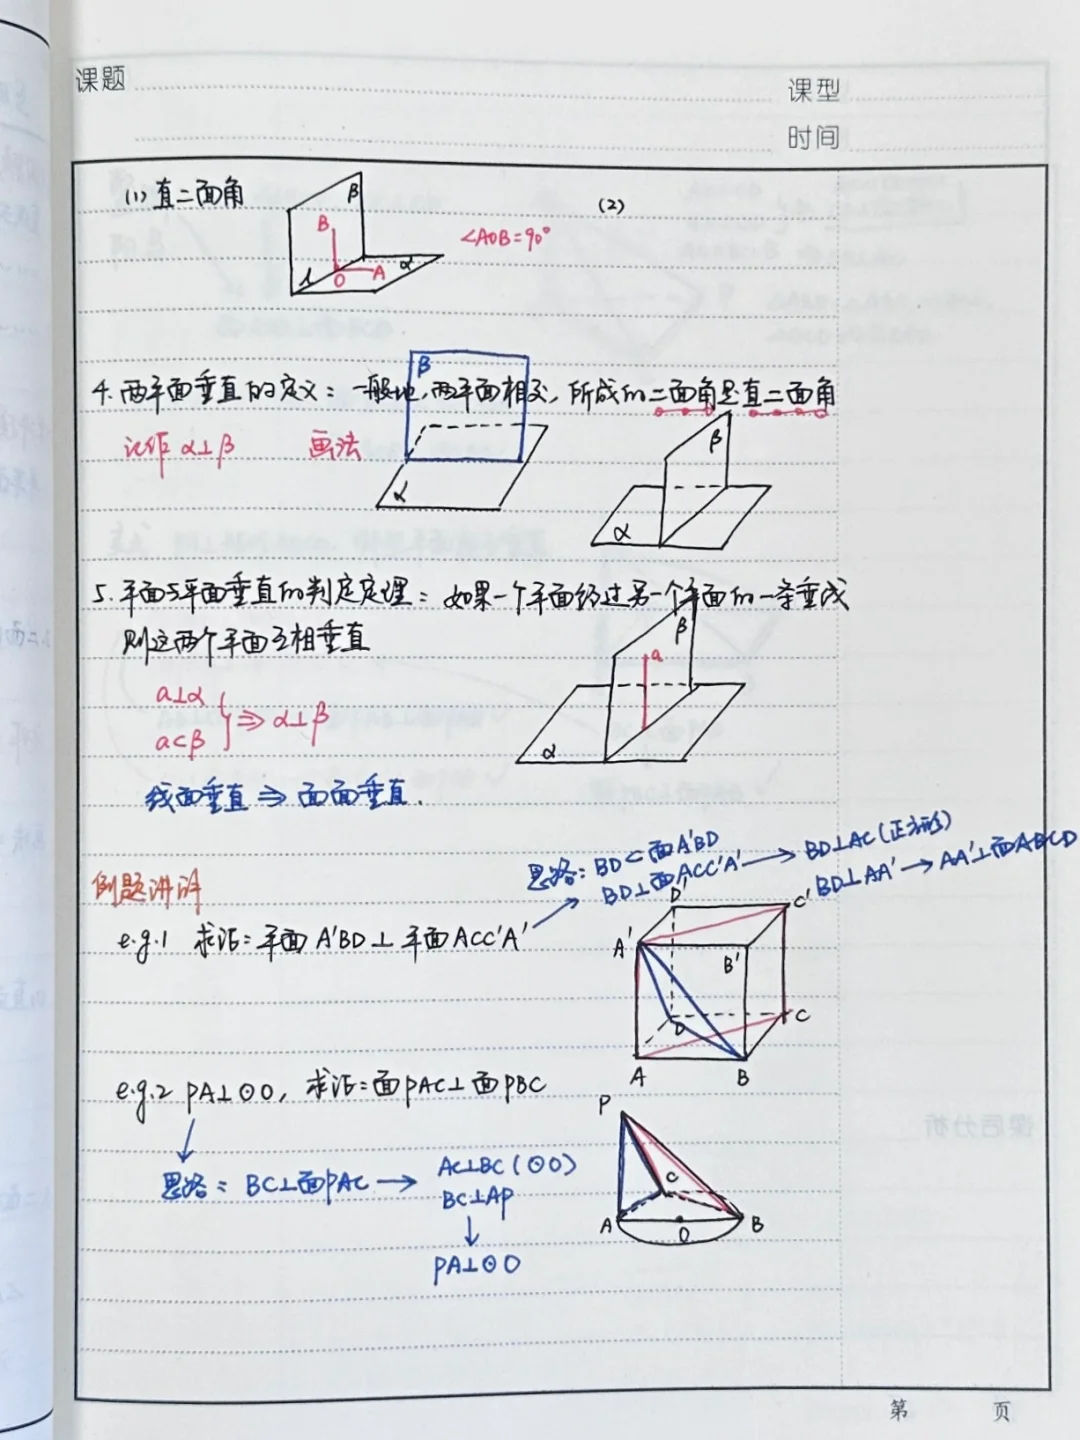 课题
课型
时间
(1) 直二面角
β
B
l
O
A
α
∠AOB=90°
(2)
4. 两平面垂直的定义：一般地，两平面相交，所成的二面角是直二面角
记作 α⊥β
画法
β
α
β
α
5. 平面与平面垂直的判定定理：如果一个平面经过另一个平面的一条垂线
则这两个平面互相垂直
a⊥α
a⊂β
} ⇒ α⊥β
β
a
α
线面垂直 ⇒ 面面垂直.
例题讲解
思路：BD⊂面A'BD
BD⊥面ACC'A' → BD⊥AC(正方形)
BD⊥AA' → AA'⊥面ABCD
e.g.1 求证：平面A'BD⊥平面ACC'A'
D'
C'
A'
B'
D
C
A
B
e.g.2 PA⊥⊙O，求证：面PAC⊥面PBC
思路：BC⊥面PAC → AC⊥BC(⊙O)
BC⊥AP
↓
PA⊥⊙O
P
C
A
O
B
课后分析
第 页